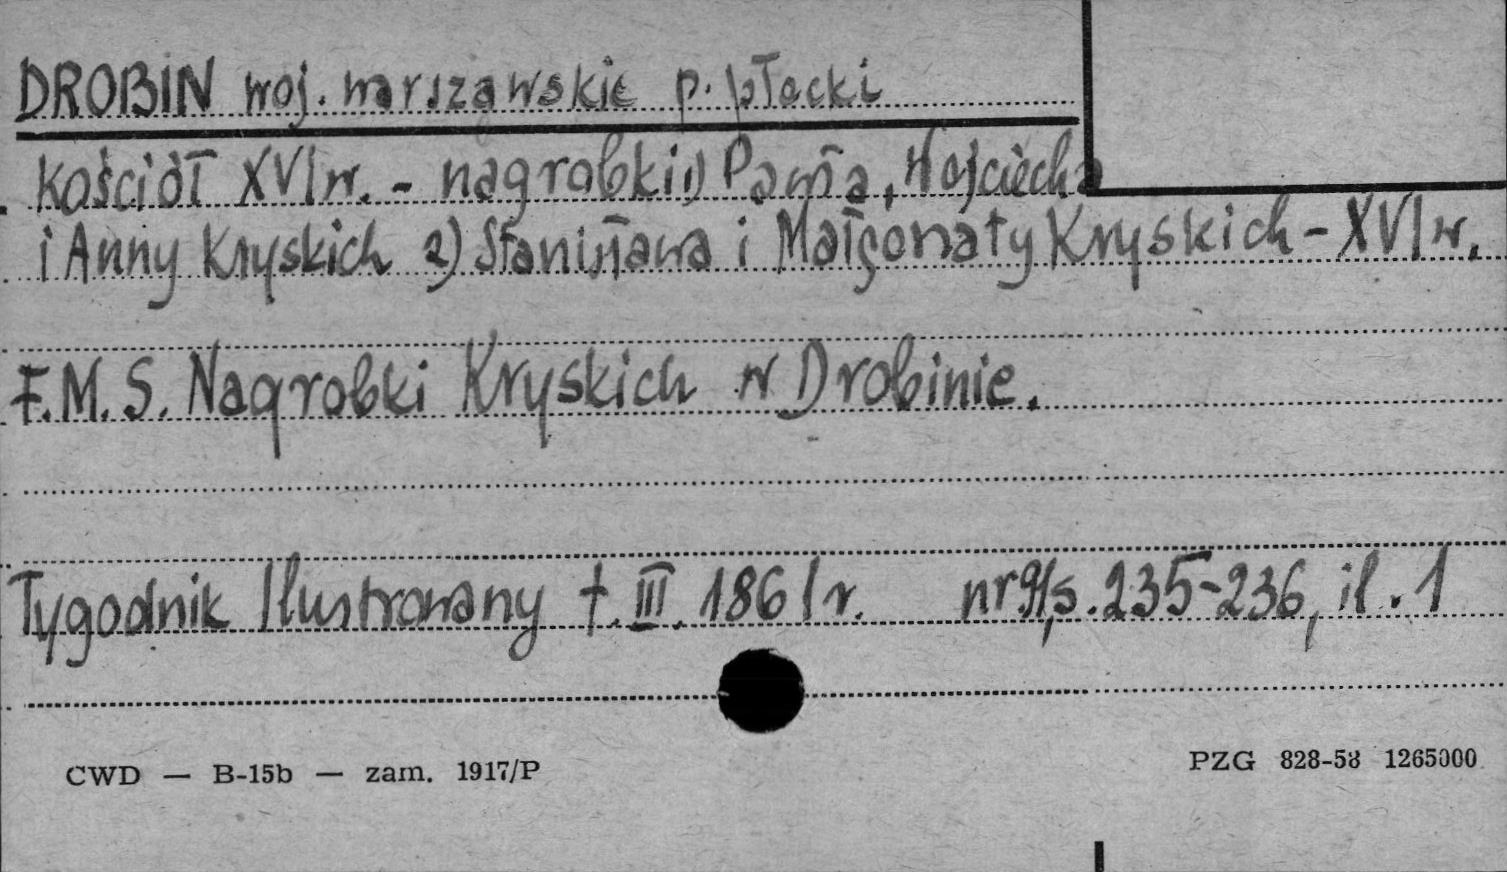 DROBIN woj. warszawskie p. płocki
Kościół XVI w. - nagrobki 1) Pawła, Wojciecha
i Anny Kryskich 2) Stanisława i Małgorzaty Kryskich - XVI w.
F.M.S. Nagrobki Kryskich w Drobinie.
Tygodnik Ilustrowany t. III. 1861 r. nr 91, s. 235-236, il. 1
CWD — B-15b — zam. 1917/P
PZG 828-58 1265000